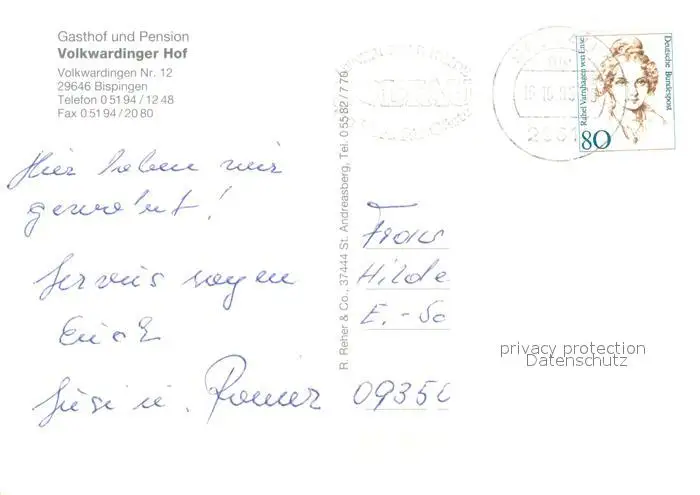 Gasthof und Pension
Volkwardinger Hof
Volkwardingen Nr. 12
29646 Bispingen
Telefon 0 51 94 / 12 48
Fax 0 51 94 / 20 80
Hier haben wir
gewohnt!
Servus sagen
Erich
Susi u. Rainer
R. Reher & Co., 37444 St. Andreasberg, Tel. 0 55 82 / 7 70
Frau
Hilde
E.-
0935
Rahel Varnhagen von Ense
Deutsche Bundespost
80
privacy protection
Datenschutz